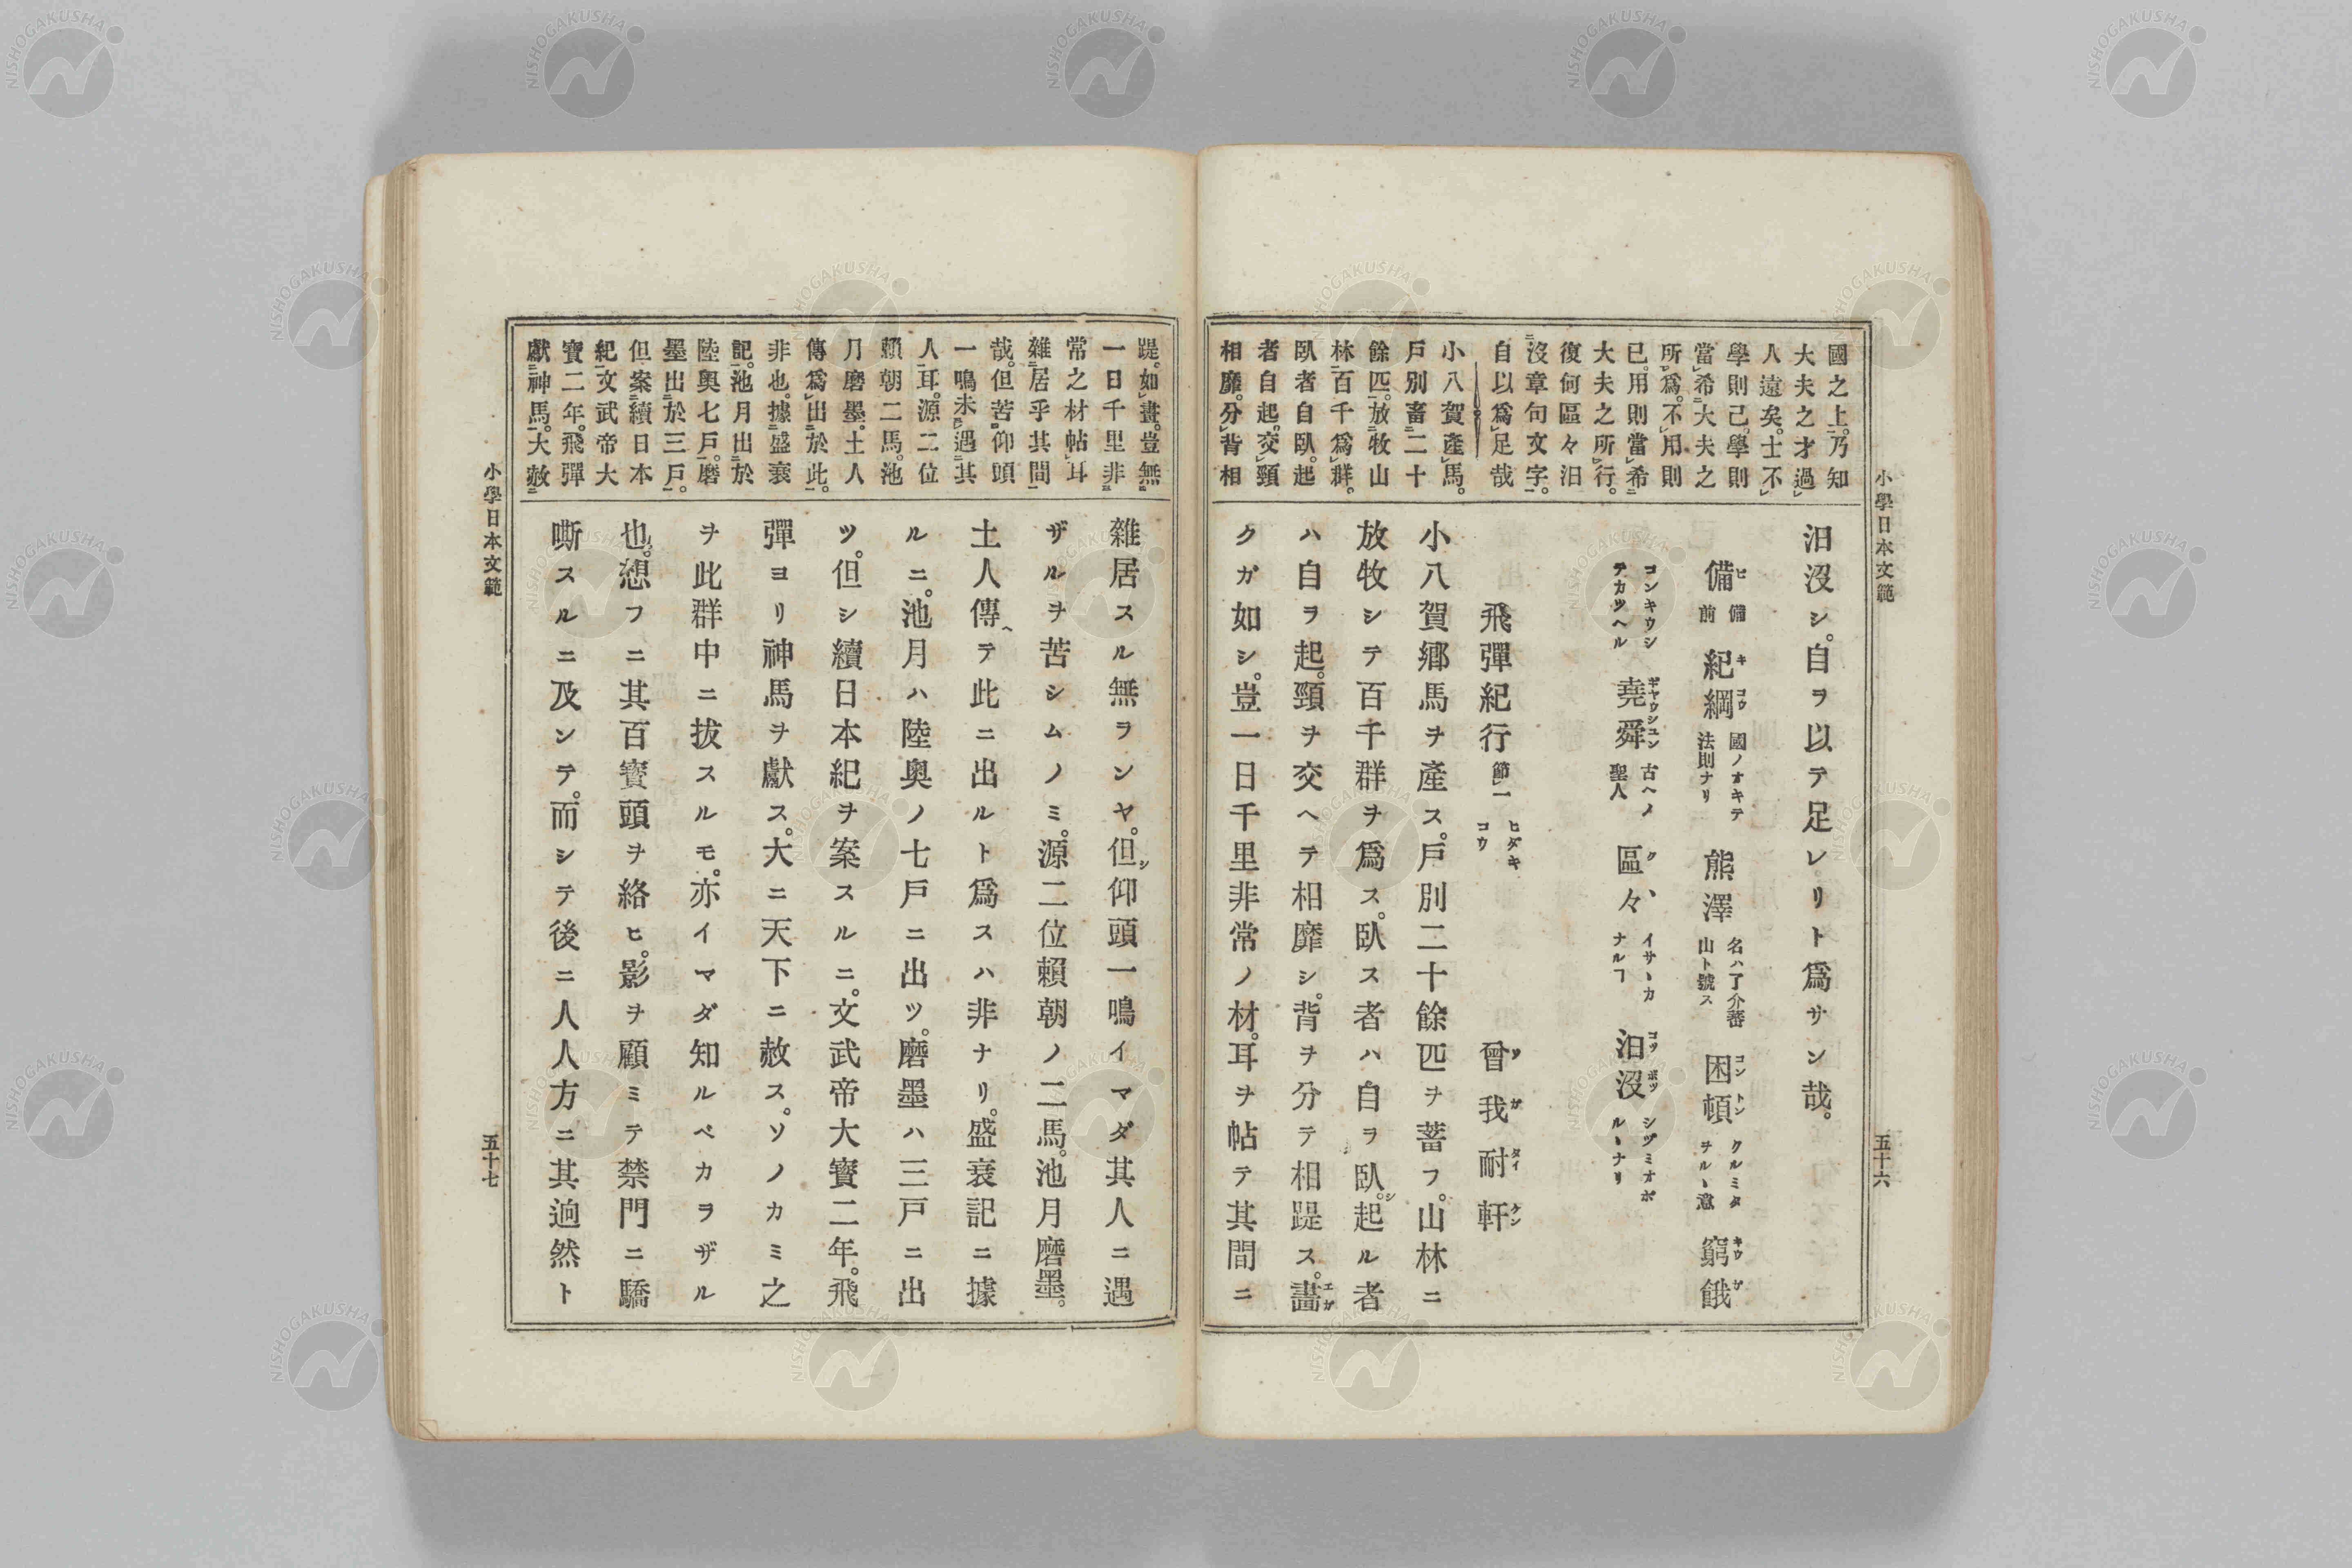 小學日本文範
五十六
國之上。乃知
大夫之才過
人遠矣。士不
學則已。學則
當希大夫之
所爲。不用則
已。用則當希
大夫之所行。
復何區々汨
沒章句文字。
自以爲足哉
小八賀產馬。
戶別畜二十
餘匹。放牧山
林百千爲群。
臥者自臥。起
者自起。交頸
相靡。分背相
汨沒シ。自ヲ以テ足レリト爲サン哉。
備ビ 備前 紀綱キコウ 國ノオキテ法則ナリ 熊澤 名ハ了介蕃山ト號ス 困頓コントン クルミタヲル丶意 窮餓キウガ
コンキウシテカツヘル 堯舜ギヤウシユン 古ヘノ聖人 區々ク丶 イサ丶カナルヿ 汨沒コツボツ シヅミオボル丶ナリ
飛彈紀行 節一 ヒダキコウ 曾我耐軒ソガタイケン
小八賀鄉馬ヲ產ス。戶別二十餘匹ヲ蓄フ。山林ニ
放牧シテ百千群ヲ爲ス。臥ス者ハ自ヲ臥シ。起ル者
ハ自ヲ起。頸ヲ交ヘテ相靡シ。背ヲ分テ相踶ス。畵エガ
クガ如シ。豈一日千里非常ノ材。耳ヲ帖テ其間ニ
踶。如畫。豈無
一日千里非
常之材帖耳
雜居乎其間
哉。但苦仰頭
一鳴未遇其
人耳。源二位
賴朝二馬。池
月磨墨。土人
傳爲出於此。
非也。據盛衰
記。池月出於
陸奧七戶。磨
墨出於三戶。
但案續日本
紀文武帝大
寶二年。飛彈
獻神馬。大赦
雜居スル無ヲンヤ。但シ仰頭一鳴イマダ其人ニ遇
ザルヲ苦シムノミ。源二位賴朝ノ二馬。池月磨墨。
土人傳ヘテ此ニ出ルト爲スハ非ナリ。盛衰記ニ據
ルニ。池月ハ陸奧ノ七戶ニ出ツ。磨墨ハ三戶ニ出
ツ。但シ續日本紀ヲ案スルニ。文武帝大寶二年。飛
彈ヨリ神馬ヲ獻ス。大ニ天下ニ赦ス。ソノカミ之
ヲ此群中ニ拔スルモ。亦イマダ知ルベカヲザル
也。想フニ其百寶頭ヲ絡ヒ。影ヲ顧ミテ禁門ニ驕
嘶スルニ及ンテ。而シテ後ニ人人方ニ其逈然ト
小學日本文範
五十七